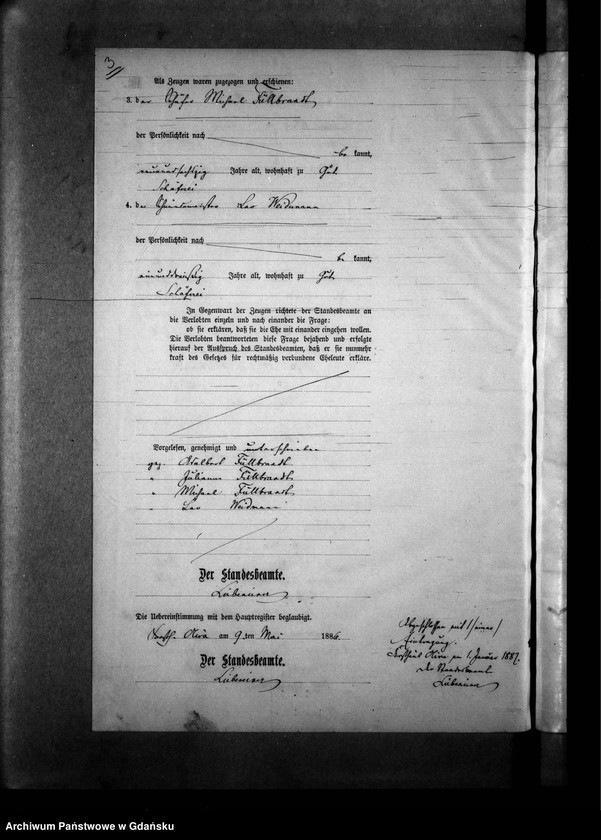 3
Als Zeugen waren zugezogen und erschienen:
3. der Schäfer Michael Füllbrandt,
der Persönlichkeit nach
be kannt,
neunundsechzig Jahre alt, wohnhaft zu Gut
Schäferei
4. der Leo Weidmann
der Persönlichkeit nach
be kannt,
einunddreißig Jahre alt, wohnhaft zu Gut
Schäferei
In Gegenwart der Zeugen richtete der Standesbeamte an
die Verlobten einzeln und nach einander die Frage:
ob sie erklären, daß sie die Ehe mit einander eingehen wollen.
Die Verlobten beantworteten diese Frage bejahend und erfolgte
hierauf der Ausspruch des Standesbeamten, daß er sie nunmehr
kraft des Gesetzes für rechtmäßig verbundene Eheleute erkläre.
Vorgelesen, genehmigt und unterschrieben
gez. Adalbert Füllbrandt
" Julianna Füllbrandt
" Michael Füllbrandt
" Leo Weidmann
Der Standesbeamte.
Die Uebereinstimmung mit dem Hauptregister beglaubigt.
Oliva am 9. ten Mai 1886
Der Standesbeamte.
Abgeschlossen mit 1/einer/
Eintragung.
Oliva, den 1. Januar 1887.
Der Standesbeamte
Archiwum Państwowe w Gdańsku